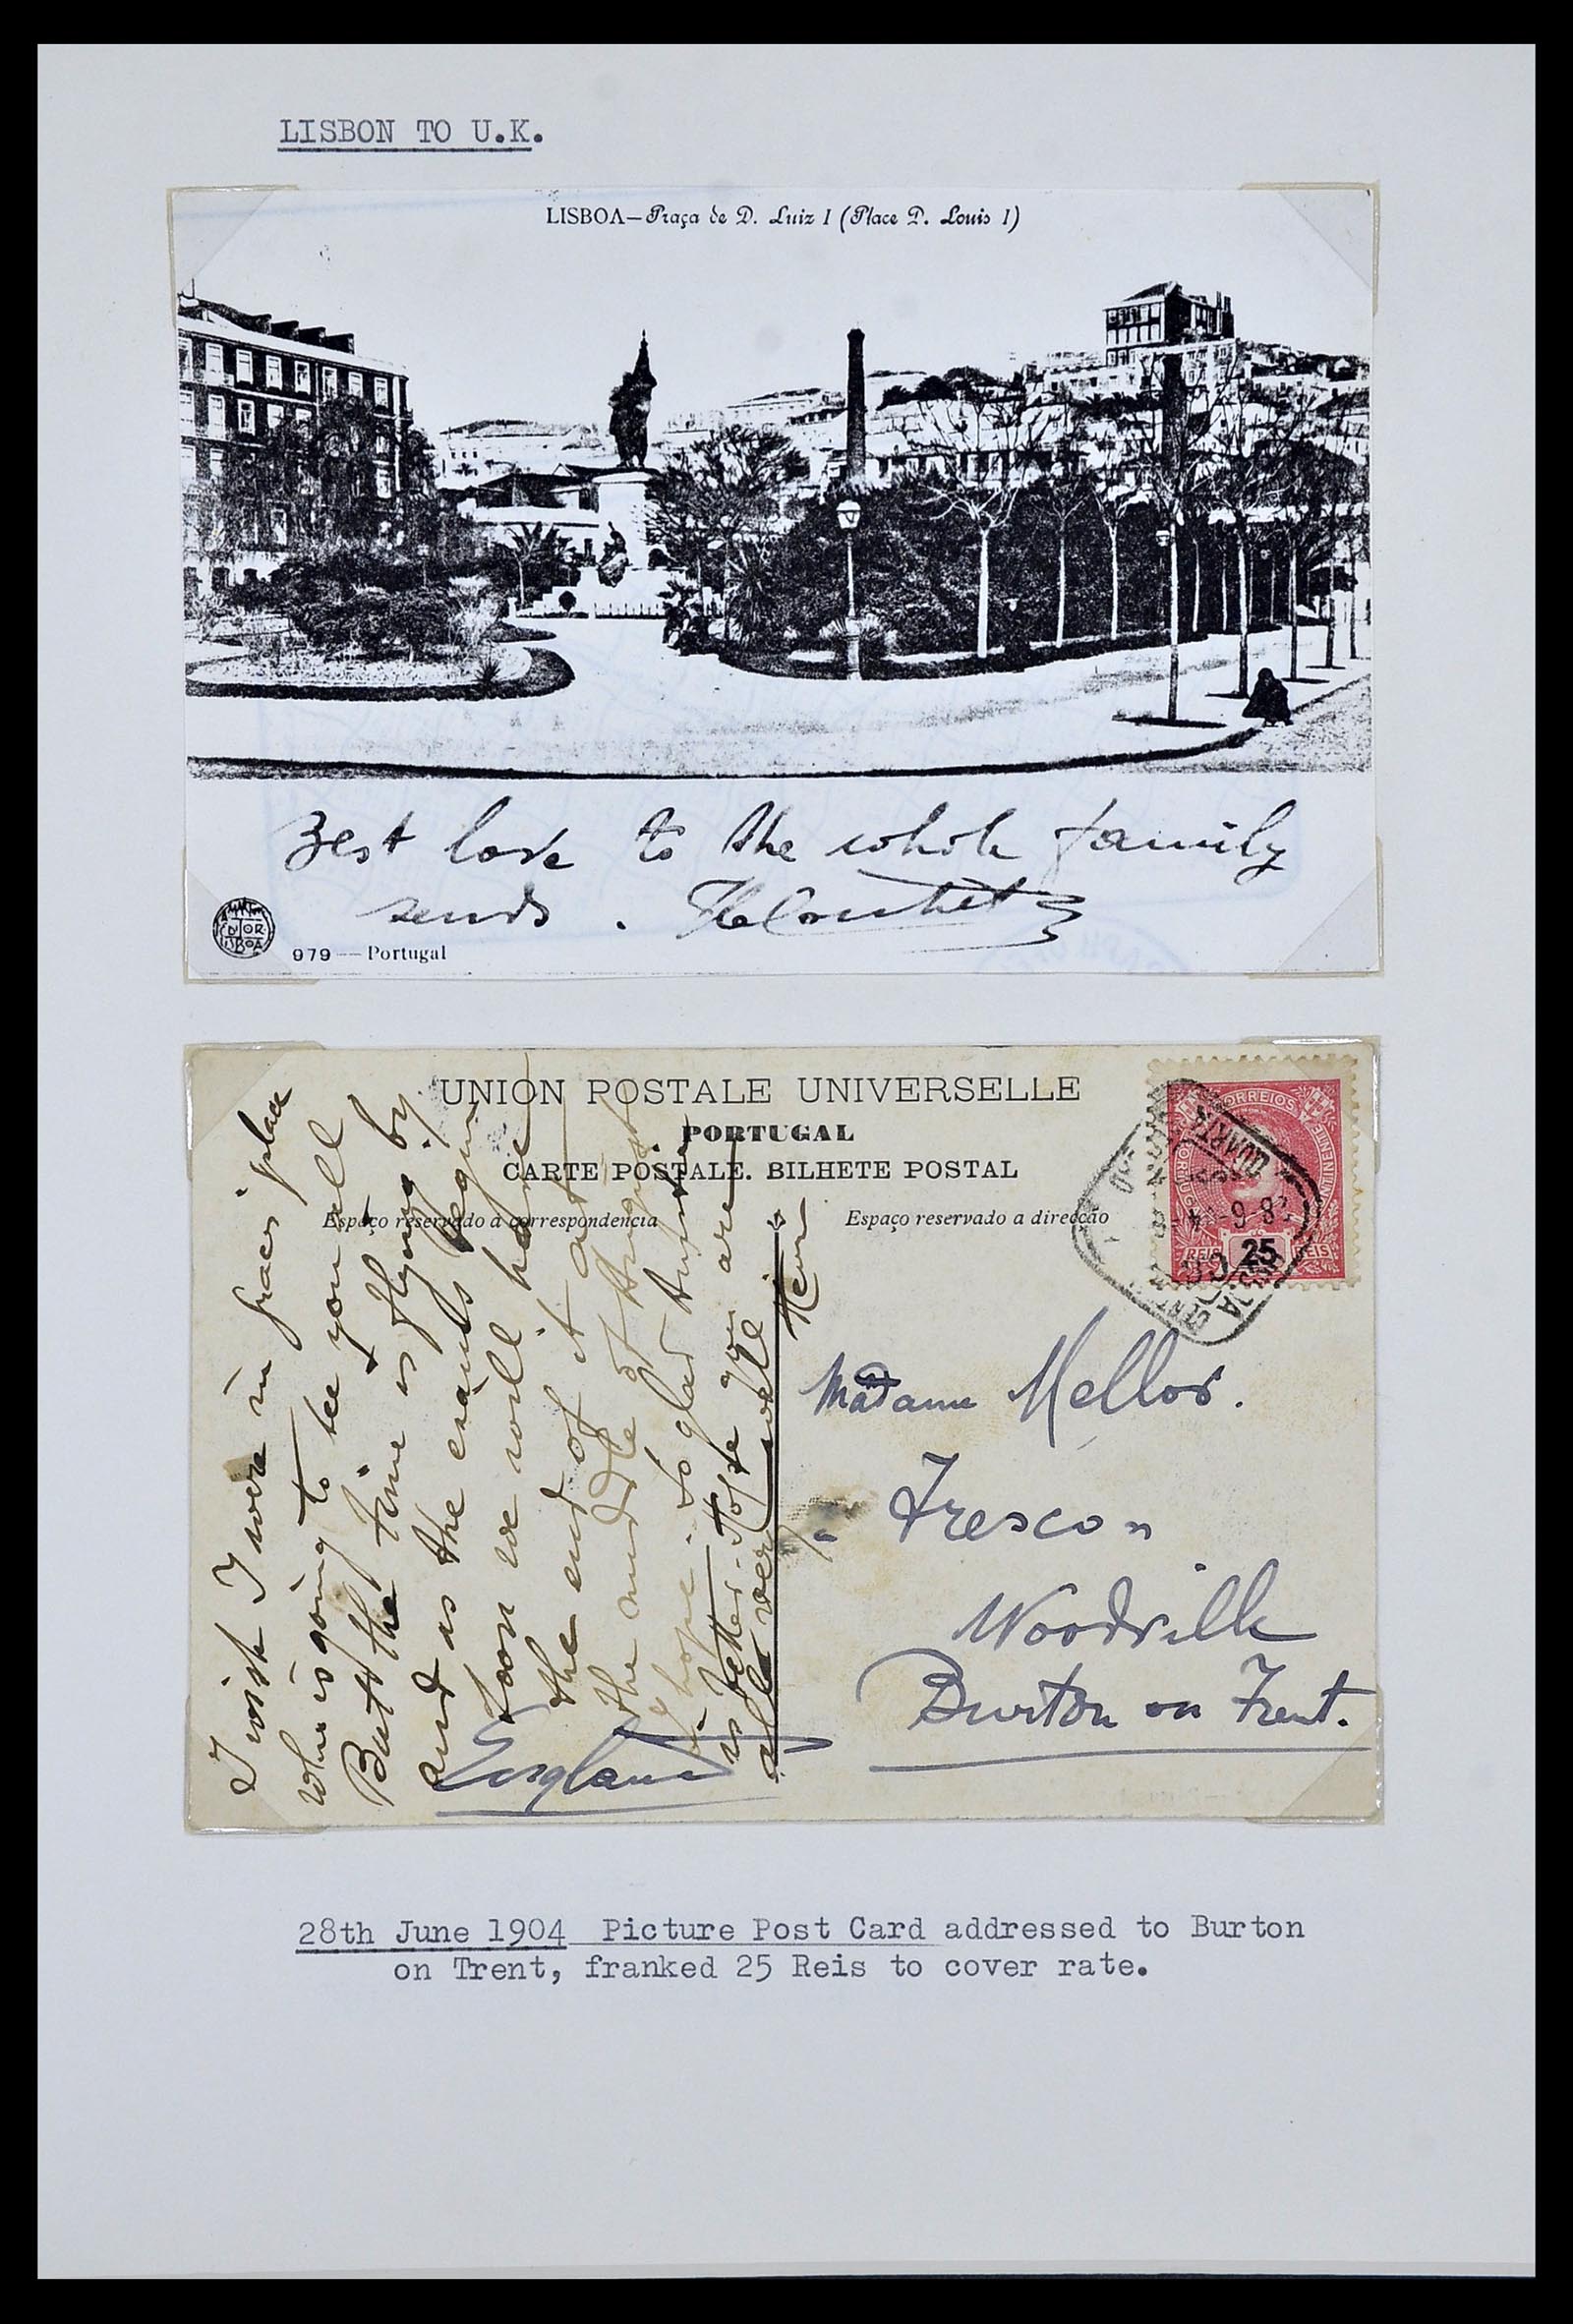 LISBON TO U.K.
LISBOA—Praça de D. Luiz I (Place D. Louis I)
Best love to the whole family
sends.
979 — Portugal
UNION POSTALE UNIVERSELLE
PORTUGAL
CARTE POSTALE. BILHETE POSTAL
Espaço reservado á correspondencia
Espaço reservado a direcção
CORREIOS
REIS 25 REIS
I wish I were in place
who is going to see you all
But the time is flying by
and as the exams begin
soon we will have
the end of it at
the middle of August
I hope. So glad
is better. Hope you are
all very well
Madame Mellor.
Trescon
Woodville
Burton on Trent.
England
28th June 1904 Picture Post Card addressed to Burton
on Trent, franked 25 Reis to cover rate.